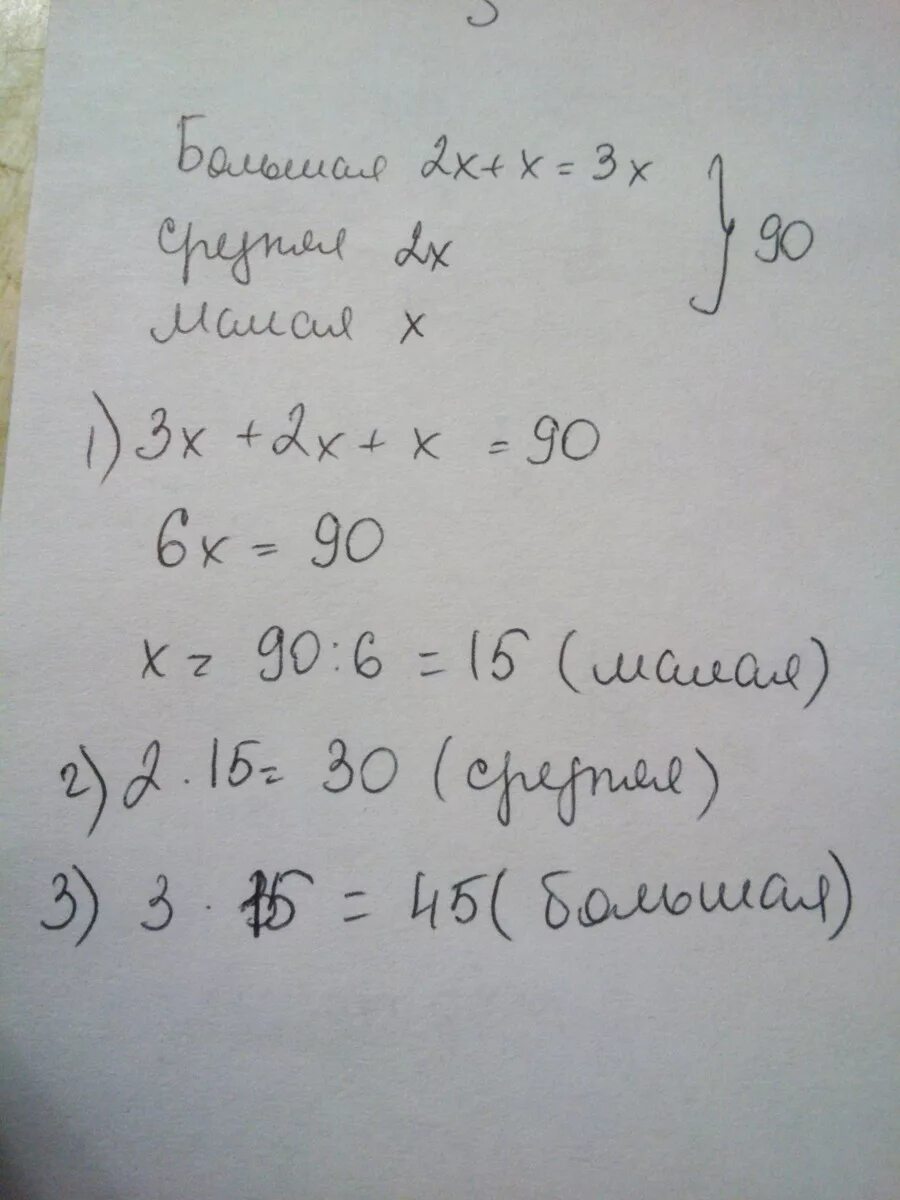 Большая 2x + x = 3x
средняя 2x
малая x
} 90
1) 3x + 2x + x = 90
6x = 90
x = 90 : 6 = 15 (малая)
2) 2 · 15 = 30 (средняя)
3) 3 · 15 = 45 (большая)